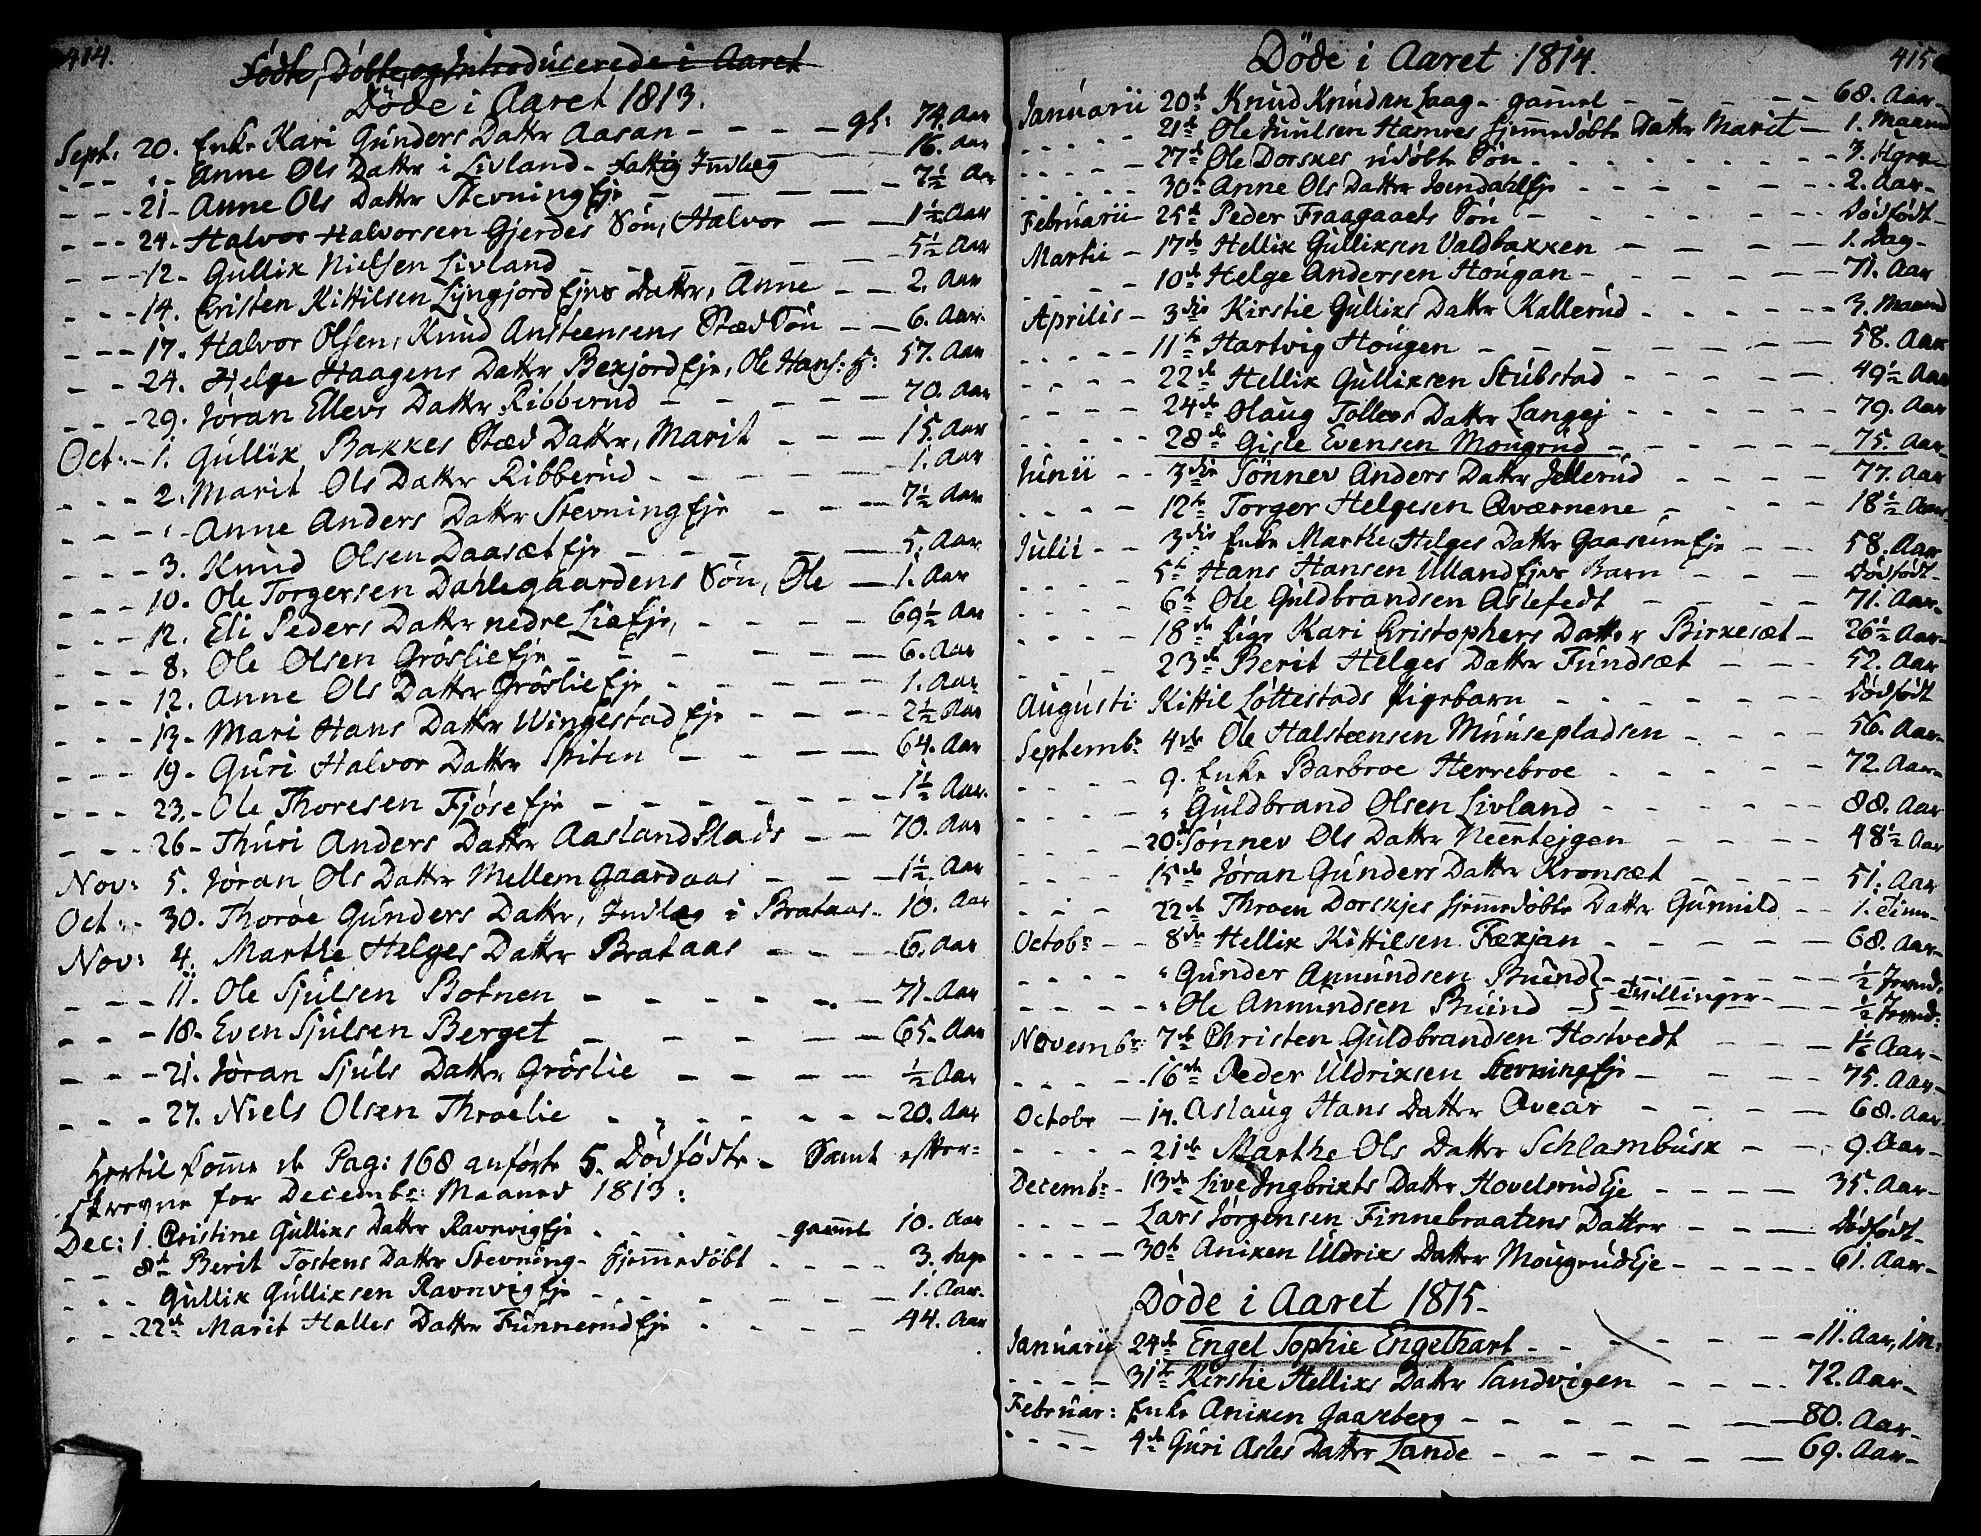 414.
Födte, Döbte, og Introducerede i Aaret
Döde i Aaret 1813.
Sept: 20. Enke Kari Gunders Datter Aasan - - - - gl: 74. Aar
- - - „ - Anne Ols Datter i Livland - Fattig Indlæg 16. Aar
- - - 21 - Anne Ols Datter Stevning Eje - - - 7½ Aar
- - - 24 - Halvor Halvorsen Gjerdes Sön, Halvor - - 1½ Aar
- - - 12 - Gullik Nielsen Livland - - - 5½ Aar
- - - 14. Cristen Kittilsen Lyngjord Ejes Datter, Anne - - 2. Aar
- - - 17. Halvor Olsen, Knud Ansteensens Stæd Sön - - 6. Aar
- - 24. Helge Haagens Datter Bexjord Eje, Ole Hans: H: 57. Aar
- - - 29. Jöran Ellevs Datter Ribberud - - - 70. Aar
Oct: - 1. Gullik Bakkes Stæd Datter, Marit - - - 15. Aar
- - - 2. Marit Ols Datter Ribberud - - - 1. Aar
- - - „ - Anne Anders Datter Stevning Eje - - - 7½ Aar
- - - 3. Knud Olsen Daasæt Eje - - - 5. Aar
- - - 10. Ole Torgersen Dahlegaardens Sön, Ole - 1. Aar
- - - 12. Eli Peders Datter nedre Lia Eje, - - - 69½ Aar
- - - 8. Ole Olsen Gröslie Eje - - - 6. Aar
- - - 12. Anne Ols Datter Gröslie Eje - - - 1. Aar
- - - 13 - Mari Hans Datter Wingestad Eje - - - 2½ Aar
- - - 19 - Guri Halvor Datter Spiten - - - 64. Aar
- - - 23 - Ole Thoresen Fjöse Eje - - - 1½ Aar
- - - 26 - Thuri Anders Datter Aasland Plads - - 70. Aar
Nov: 5. Jöran Ols Datter Mellem Gaardaas - - - 1½ Aar
Oct: - 30. Thoröe Gunders Datter, Indlæg i Brataas - 10. Aar
Nov: 4. Marthe Helges Datter Brataas - - - 6. Aar
- - - 11. Ole Sjulsen Botnen - - - 71. Aar
- - - 18 - Even Sjulsen Berget - - - 65. Aar
- - - 21. Jöran Sjuls Datter Gröslie - - - ½ Aar
- - - 27. Niels Olsen Throelie - - - 20. Aar
Hertil komme de Pag: 168 anförte 5. Dödfödte - Samt efter-
skrevne for Decembr: Maaned 1813:
Dec: 1. Cristine Gulliks Datter Ravnvig Eje - - - gammel 10. Aar
- - 8de Berit Tostens Datter Stevning - hjemmedöbt - - - 3. Dage
- - - Gullik Gulliksen Ravnvig Eje - - - 1. Aar
- - 22de Marit Halles Datter Funnerud Eje - - - 44. Aar
415
Döde i Aaret 1814.
Januarii 20de Knud Knudsen Laag - gammel - - - 68. Aar
- - - 21de Ole Juulsen Hamres hjemmedöbte Datter Marit - 1. Maaned
- - - 27de Ole Dorskes udöbte Sön - - - 3. Uger
- - - 30te Anne Ols Datter Jondahl Eje - - - 2. Aar
Februarii 25de Peder Fraagaaets Sön - - - Dödfödt
Martii - 17de Hellik Gulliksen Valdbakken - - - 1. Dag
- - - 10de Helge Andersen Hougan - - - 71. Aar
Aprilis - 3die Kirstie Gulliks Datter Kallerud - - - 3. Maaned
- - - 11te Hartvig Hougen - - - 58. Aar
- - - 22de Hellik Gulliksen Stubstad - - - 49½ Aar
- - - 24de Olaug Tollevs Datter Langej - - - 79. Aar
- - - 28de Gisle Evensen Mougrud - - - 75. Aar
Junii - - 3die Tönnev Anders Datter Jellerud - - - 77. Aar
- - - 12te Torger Helgesen Qværnene - - - 18½ Aar
Julii - - 3die Enke Marthe Helges Datter Gaasum Eje - - 58. Aar
- - - 5te Hans Hansen Ulland Ejes Barn - - - Dödfödt
- - - 6te Ole Guldbrandsen Aslefedt - - - 71. Aar
- - - 18de Pige Kari Cristophers Datter Birkesæt - 26½ Aar
- - - 23de Berit Helges Datter Fundsæt - - - 52. Aar
Augusti Kittil Lottestads Pigebarn - - - Dödfödt
Septembr 4de Ole Halsteensen Muusepladsen - - - 56. Aar
- - - 9. Enke Barbroe Herrebroe - - - 72. Aar
- - - „ Guldbrand Olsen Livland - - - 88. Aar
- - - 20. Tönnev Ols Datter Neertejgen - - - 48½ Aar
- - - 15de Jöran Gunders Datter Kronsæt - - - 51. Aar
- - - 22de Throen Dorskjes hjemmedöbte Datter Gunnild - - 1. Time
Octobr - - 8de Hellik Kittilsen Fæxjan - - - 68. Aar
- - - „ Gunder Amundsen Bruend } - - - ½
- - - „ Ole Anmundsen Bruend } tvillinger - ½
Novembr: 7de Christen Guldbrandsen Hostvedt - - - Aar
- - - 16de Peder Uldriksen Stevning Eje - - - 75. Aar
Octobr - 14. Aslaug Hans Datter Qvear - - - 68. Aar
- - - 21de Marthe Ols Datter Schlambusk - - 9. Aar
Decembr - 13de Live Ingbrikts Datter Hovelsrud Eje - - - 35. Aar
- - - Lars Jörgensen Finnebraatens Datter - - - Dödfödt
- - - 30te Aniken Uldriks Datter Mougrud Eje - - - 61. Aar
Döde i Aaret 1815 -
Januarii 24de Engel Sophie Engelhart - - - 11. Aar, 1 m:
- - - 31te Kirstie Helliks Datter Sandvigen - - - 72. Aar
Februar: Enke Aniken Gaarberg - - - 80. Aar
- - - 4de Guri Asles Datter Lande - - - 69. Aar